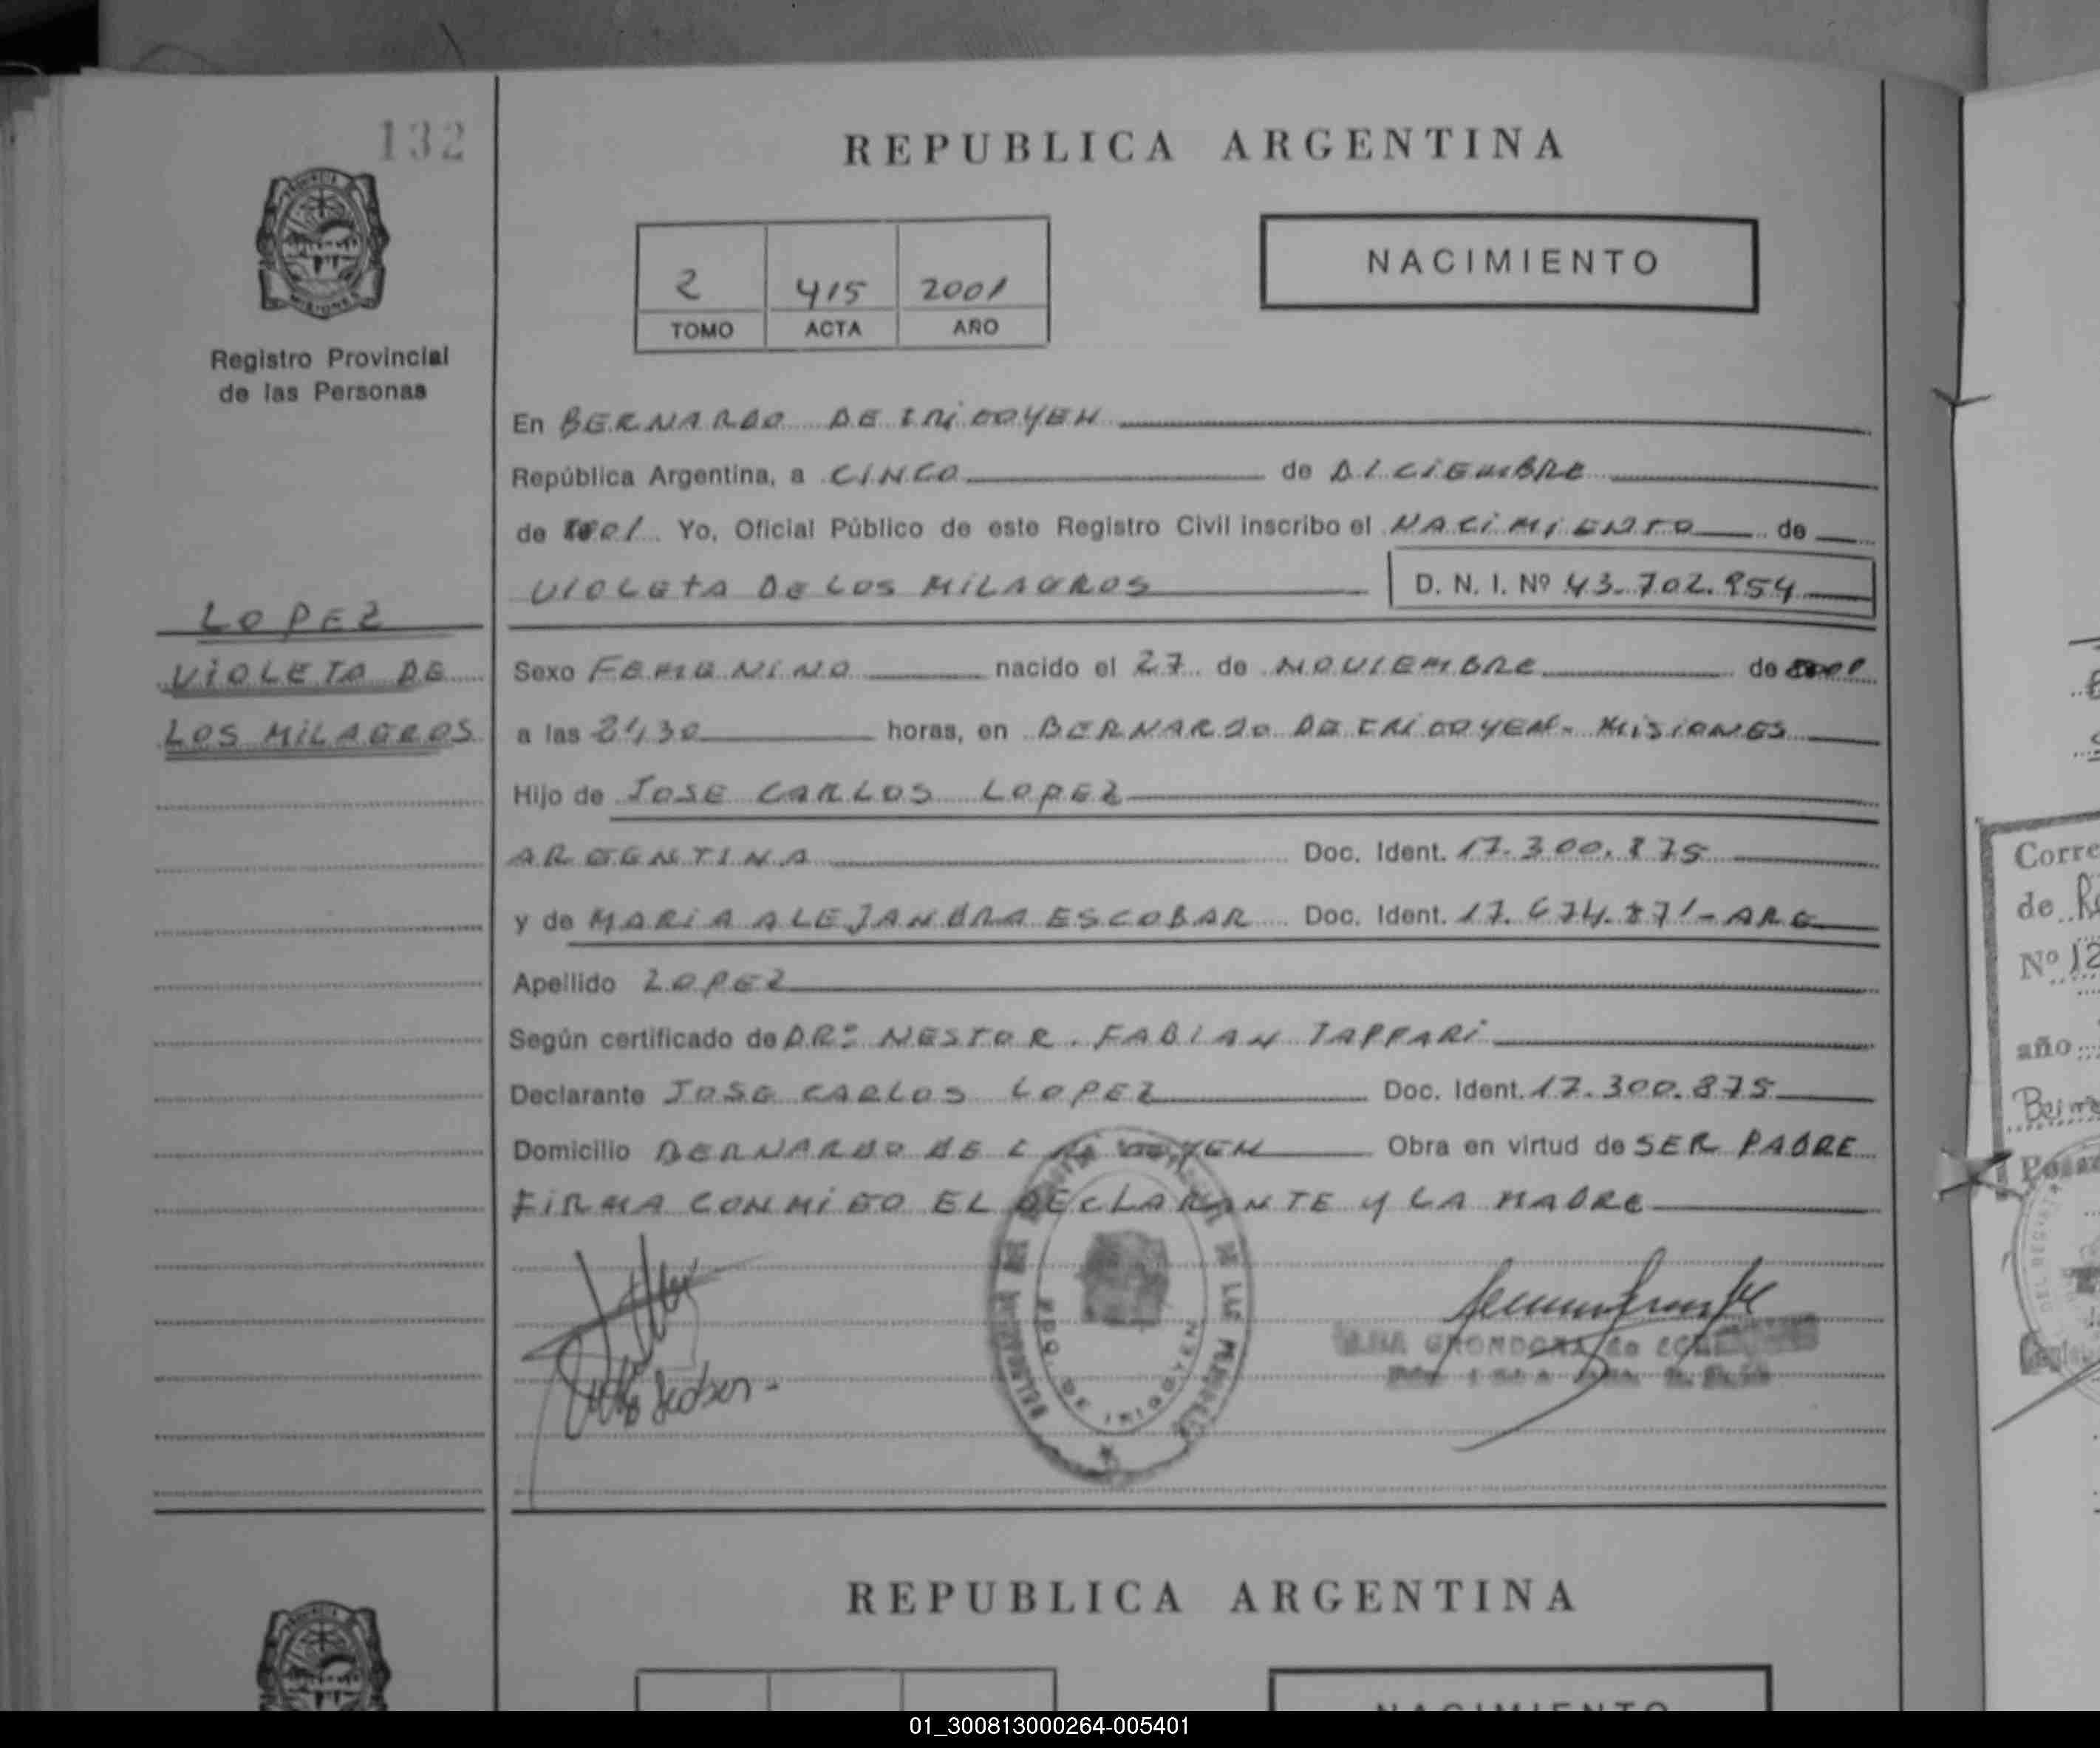 132
REPUBLICA ARGENTINA
NACIMIENTO
2 415 2001
TOMO ACTA AÑO
Registro Provincial
de las Personas
En BERNARDO DE IRIGOYEN
República Argentina, a CINCO de DICIEMBRE
de 2001 Yo, Oficial Público de este Registro Civil inscribo el NACIMIENTO de
VIOLETA DE LOS MILAGROS D. N. I. Nº 43.702.954
LOPEZ
VIOLETA DE
LOS MILAGROS
Sexo FEMENINO nacido el 27 de NOVIEMBRE de 2001
a las 21,30 horas, en BERNARDO DE IRIGOYEN - MISIONES
Hijo de JOSE CARLOS LOPEZ
ARGENTINA Doc. Ident. 17.300.875
y de MARIA ALEJANDRA ESCOBAR Doc. Ident. 17.674.871 - ARG
Apellido LOPEZ
Según certificado de DRº NESTOR. FABIAN TAPPARI
Declarante JOSE CARLOS LOPEZ Doc. Ident. 17.300.875
Domicilio BERNARDO DE IRIGOYEN Obra en virtud de SER PADRE
FIRMA CONMIGO EL DECLARANTE Y LA MADRE
DE IRIGOYEN
REPUBLICA ARGENTINA
NACIMIENTO
Corre
de
Nº 12
año
01_300813000264-005401